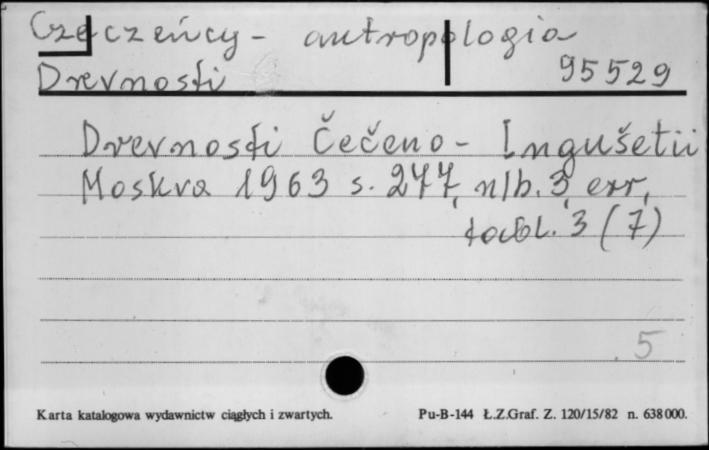 Czeczeńcy - antropologia
Drevnosti 95529
Drevnosti Čečeno - Ingušetii
Moskva 1963 s. 277, nlb. 3, err,
tabl. 3 (7)
5
Karta katalogowa wydawnictw ciągłych i zwartych. Pu-B-144 Ł.Z.Graf. Z. 120/15/82 n. 638000.